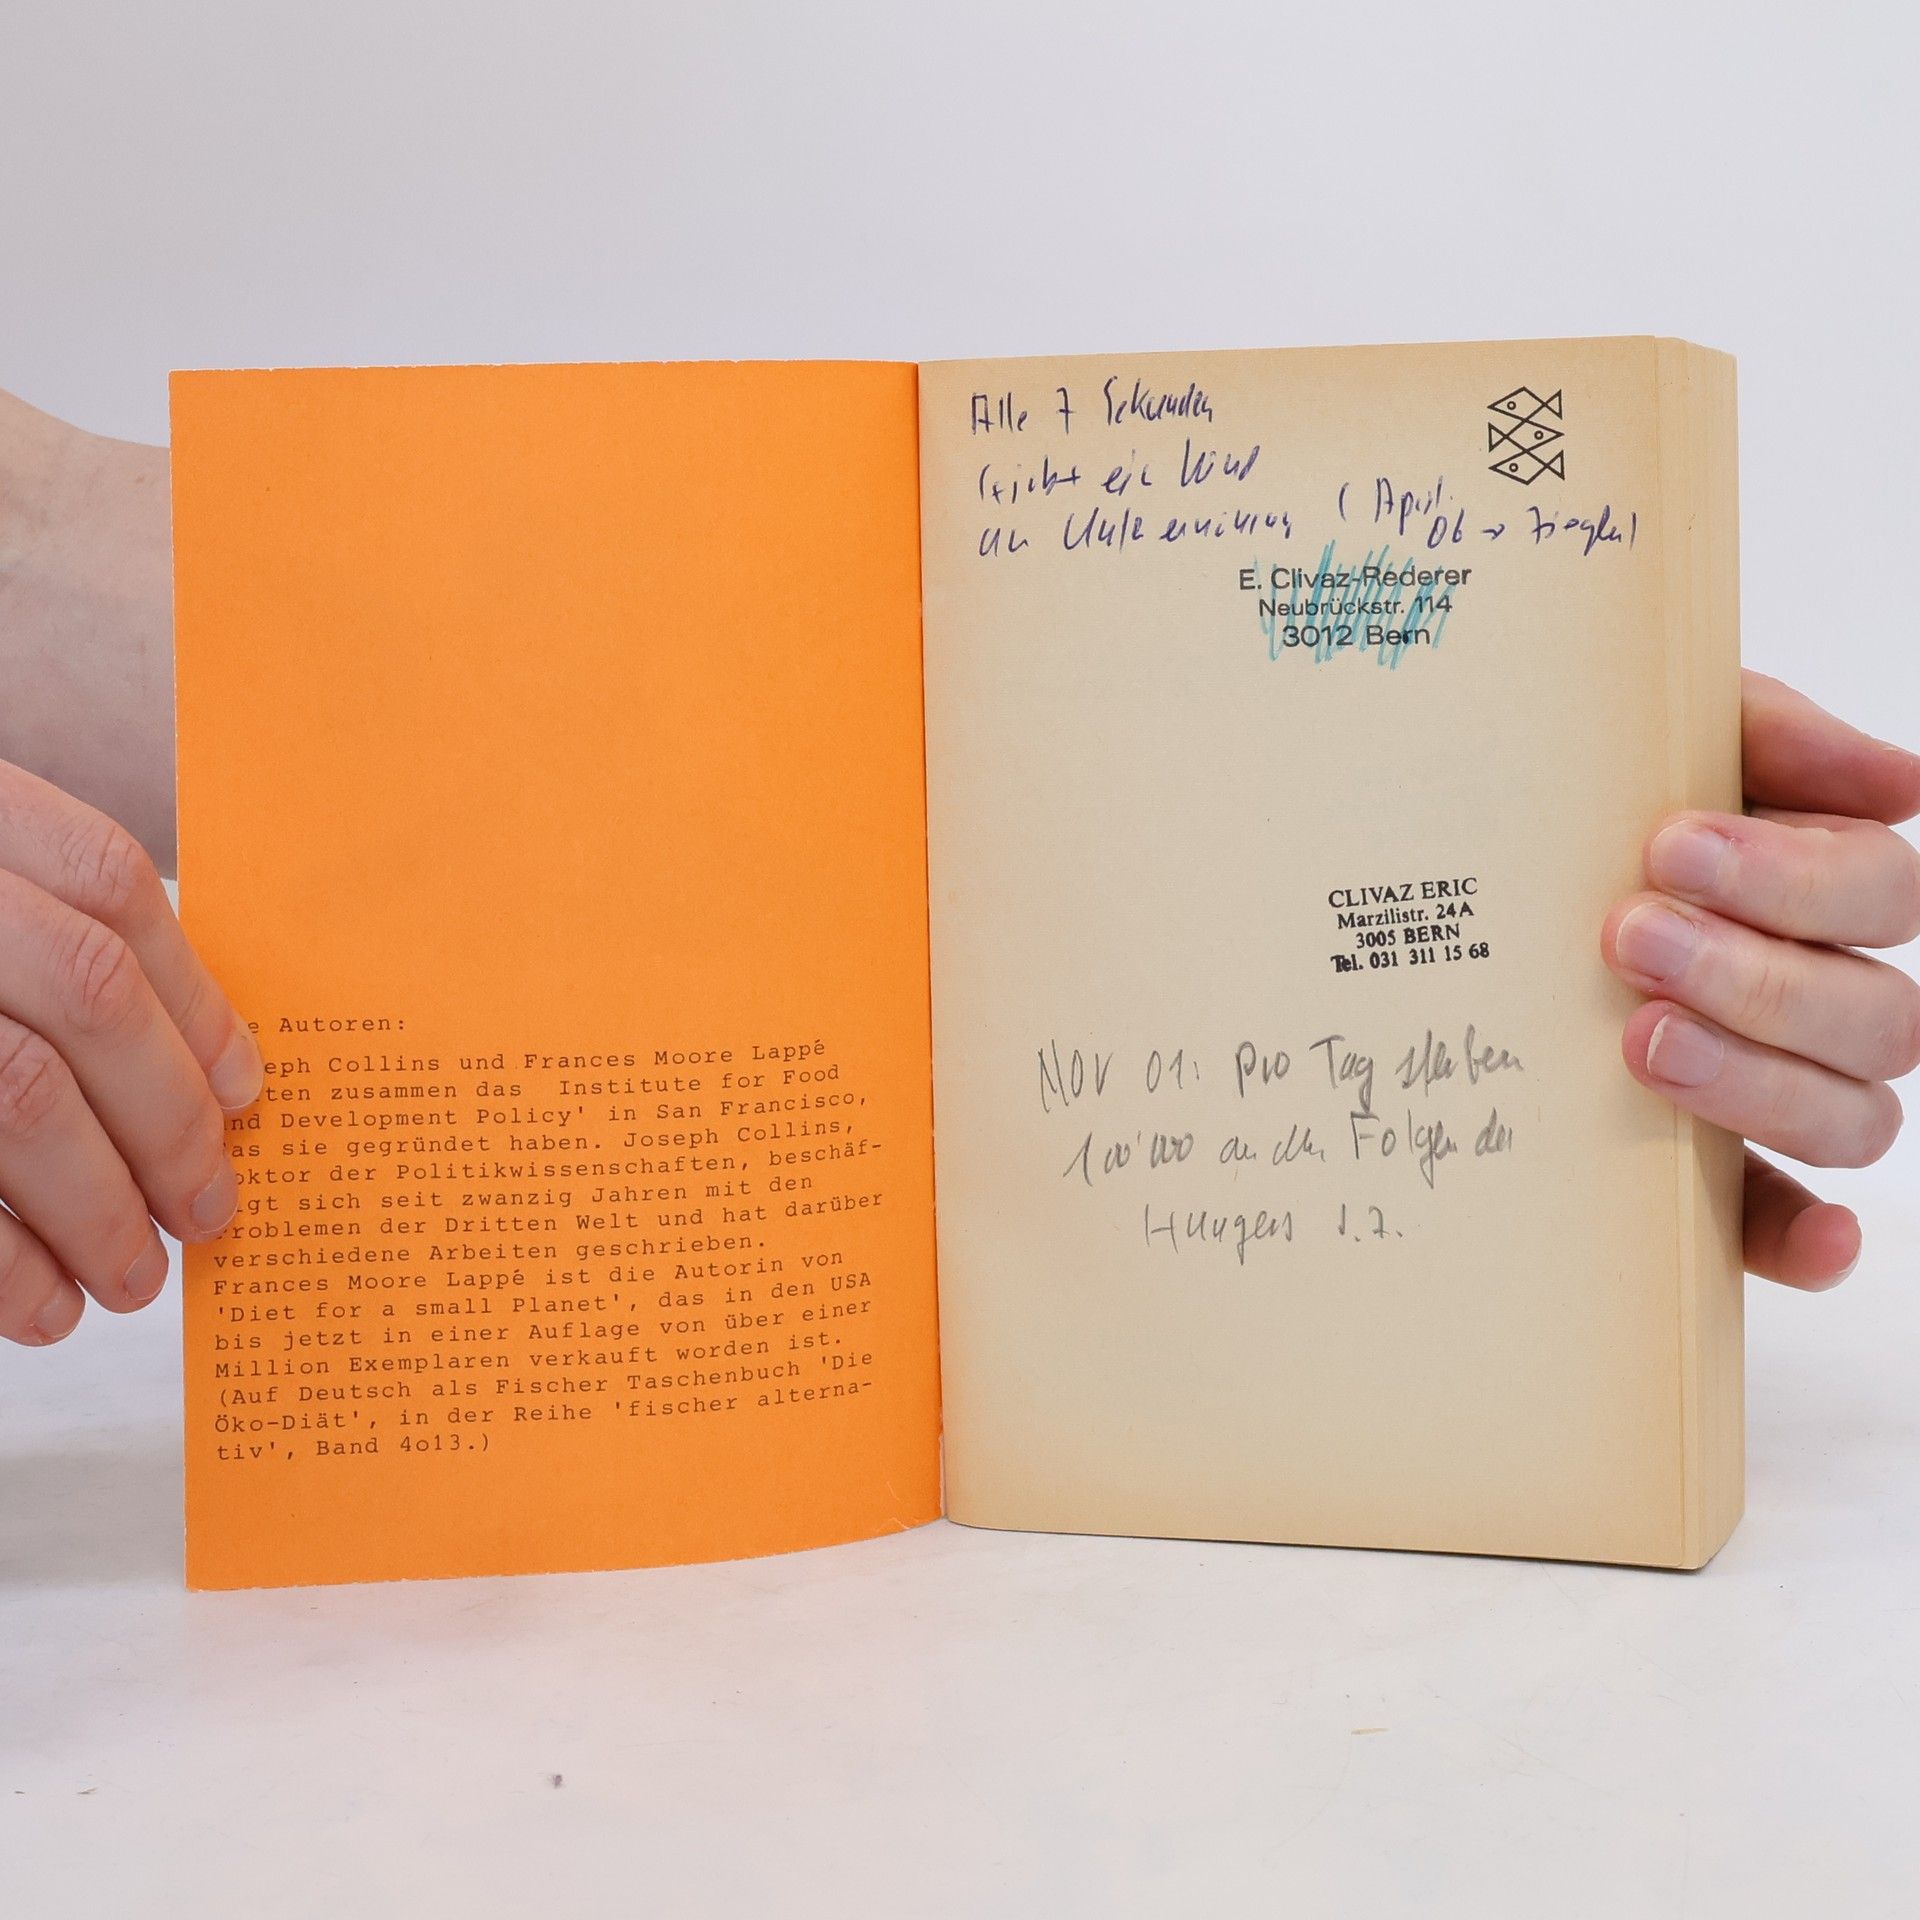 e Autoren:
eph Collins und Frances Moore Lappé
ten zusammen das Institute for Food
nd Development Policy' in San Francisco,
as sie gegründet haben. Joseph Collins,
oktor der Politikwissenschaften, beschäf-
igt sich seit zwanzig Jahren mit den
roblemen der Dritten Welt und hat darüber
verschiedene Arbeiten geschrieben.
Frances Moore Lappé ist die Autorin von
'Diet for a small Planet', das in den USA
bis jetzt in einer Auflage von über einer
Million Exemplaren verkauft worden ist.
(Auf Deutsch als Fischer Taschenbuch 'Die
Öko-Diät', in der Reihe 'fischer alterna-
tiv', Band 4o13.)
Alle 7 Sekunden
stirbt ein Kind
an Unterernährung (April 06 → Ziegler)
E. Clivaz-Rederer
Neubrückstr. 114
3012 Bern
CLIVAZ ERIC
Marzilistr. 24A
3005 BERN
Tel. 031 311 15 68
NOV 01: pro Tag sterben
100'000 an den Folgen des
Hungers J.Z.